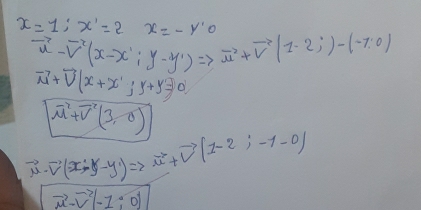 x=1; x'=2 x=-y'0
u⃗-v⃗(x-x'; y-y') => u⃗+v⃗(1-2;)-(-1.0)
u⃗+v⃗(x+x'; y+y'=0
u⃗+v⃗(3, 0)
u⃗-v⃗(x-y') => u⃗+v⃗(1-2; -1-0)
u⃗-v⃗(-1; 0)